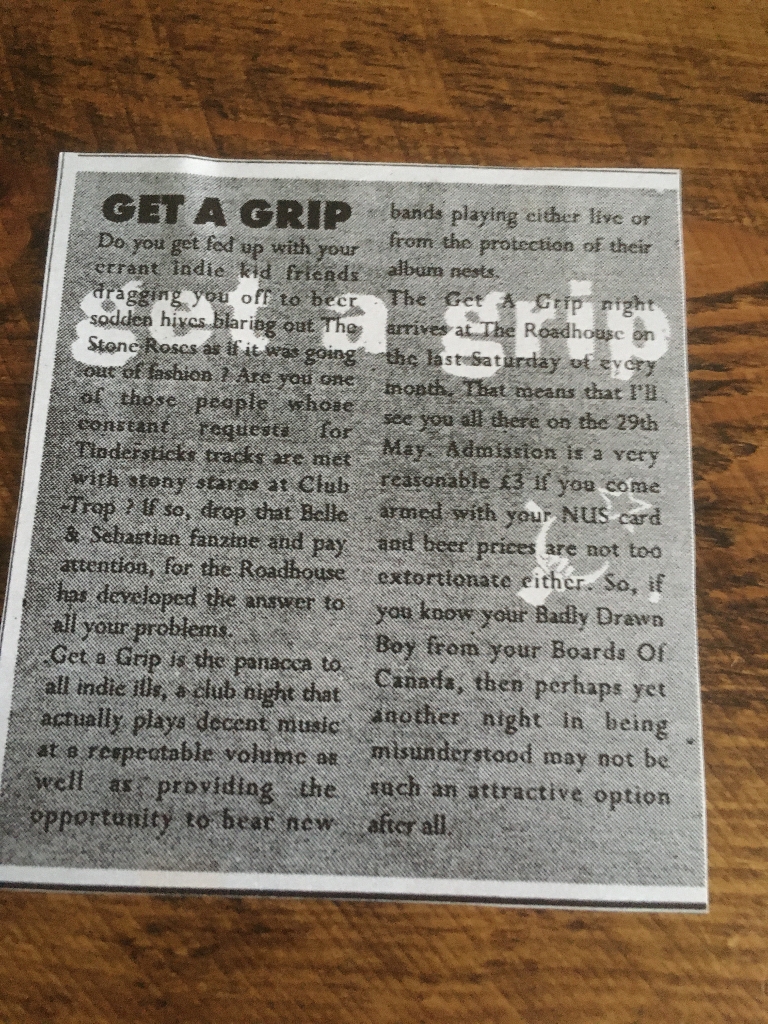 GET A GRIP
Do you get fed up with your
errant indie kid friends
dragging you off to beer
sodden hives blaring out The
Stone Roses as if it was going
out of fashion ? Are you one
of those people whose
constant requests for
Tindersticks tracks are met
with stony stares at Club
-Trop ? If so, drop that Belle
& Sebastian fanzine and pay
attention, for the Roadhouse
has developed the answer to
all your problems.
Get a Grip is the panacea to
all indie ills, a club night that
actually plays decent music
at a respectable volume as
well as providing the
opportunity to hear new
bands playing either live or
from the protection of their
album nests.
The Get A Grip night
arrives at The Roadhouse on
the last Saturday of every
month. That means that I'll
see you all there on the 29th
May. Admission is a very
reasonable £3 if you come
armed with your NUS card
and beer prices are not too
extortionate either. So, if
you know your Badly Drawn
Boy from your Boards Of
Canada, then perhaps yet
another night in being
misunderstood may not be
such an attractive option
after all.
get a grip